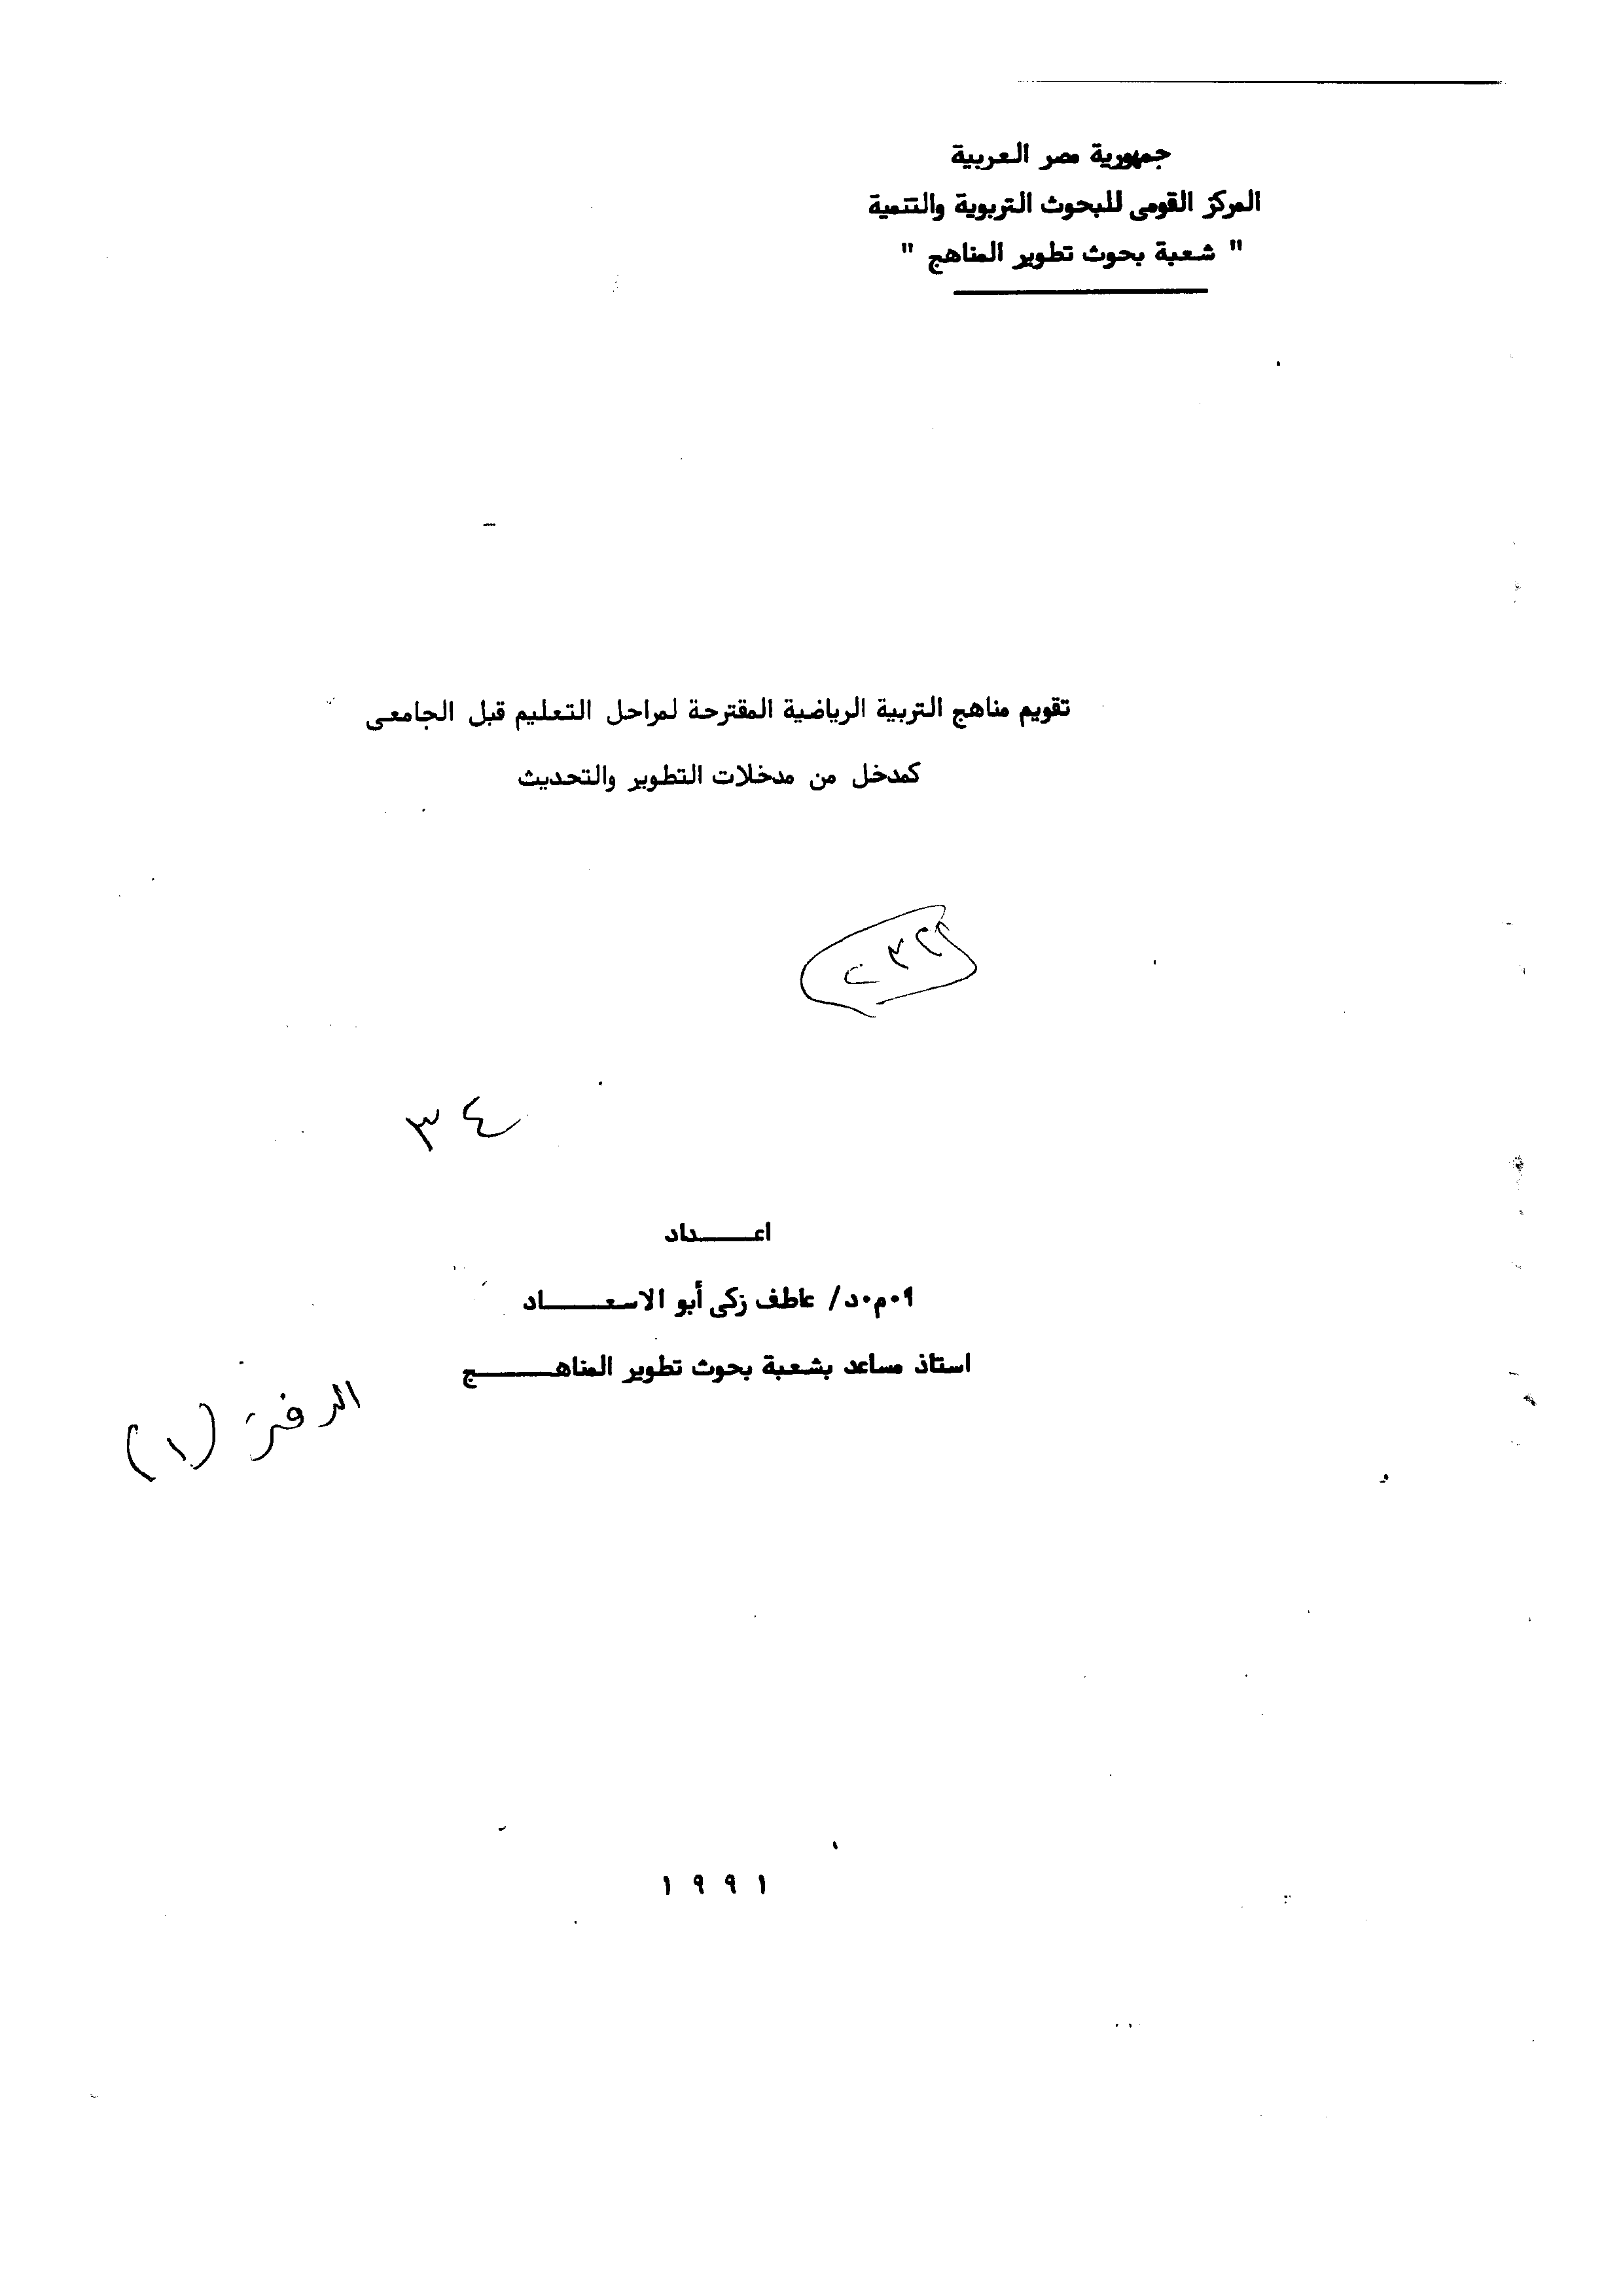 جمهورية مصر العربية
المركز القومى للبحوث التربوية والتنمية
" شعبة بحوث تطوير المناهج "
تقويم مناهج التربية الرياضية المقترحة لمراحل التعليم قبل الجامعى
كمدخل من مدخلات التطوير والتحديث
٣٤
اعـــــداد
٠٩م٠د/ عاطف زكى أبو الاسعـــــاد
استاذ مساعد بشعبة بحوث تطوير المناهـــــج
الدفتر (١)
١٩٩١